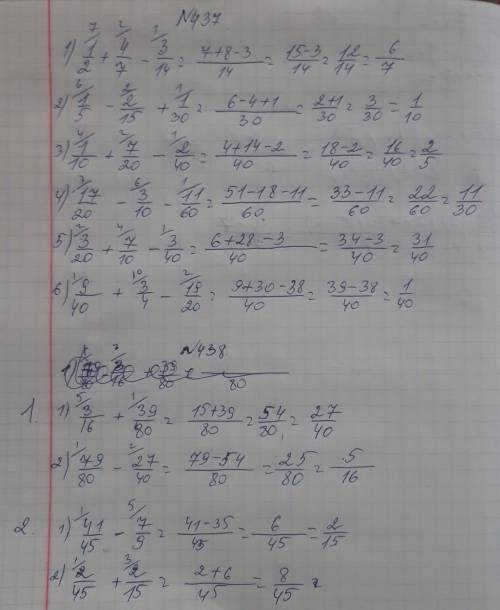 №437
1) 7/1/2 + 2/4/7 - 1/3/14 = 7+8-3/14 = 15-3/14 = 12/14 = 6/7
2) 6/1/5 - 2/2/15 + 1/1/30 = 6-4+1/30 = 2+1/30 = 3/30 = 1/10
3) 4/1/10 + 2/7/20 - 1/2/40 = 4+14-2/40 = 18-2/40 = 16/40 = 2/5
4) 3/17/20 - 6/3/10 - 1/11/60 = 51-18-11/60 = 33-11/60 = 22/60 = 11/30
5) 2/3/20 + 4/7/10 - 1/3/40 = 6+28-3/40 = 34-3/40 = 31/40
6) 1/9/40 + 10/3/4 - 2/19/20 = 9+30-38/40 = 39-38/40 = 1/40
№438
1. 1) 5/3/16 + 1/39/80 = 15+39/80 = 54/80 = 27/40
2) 1/79/80 - 2/27/40 = 79-54/80 = 25/80 = 5/16
2. 1) 1/41/45 - 5/7/9 = 41-35/45 = 6/45 = 2/15
2) 1/2/45 + 3/2/15 = 2+6/45 = 8/45